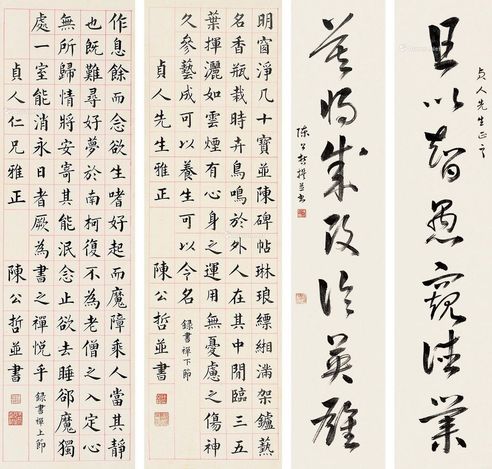 貞人先生正之
且以智愚窺德業
莫將成敗論英雄
陳公哲撰並書
明窗淨几十寶並陳碑帖琳琅縹緗滿架鑪爇
名香瓶栽時卉鳥鳴於外人在其中閒臨三五
葉揮灑如雲煙有心身之運用無憂慮之傷神
久參藝成可以養生可以令名 錄書禪下節
貞人先生雅正 陳公哲並書
作息餘而念欲生嗜好起而魔障乘人當其靜
也既難尋好夢於南柯復不為老僧之入定心
無所歸情將安寄其能泯念止欲去睡卻魔獨
處一室能消永日者厥為書之禪悅乎 錄書禪上節
貞人仁兄雅正 陳公哲並書